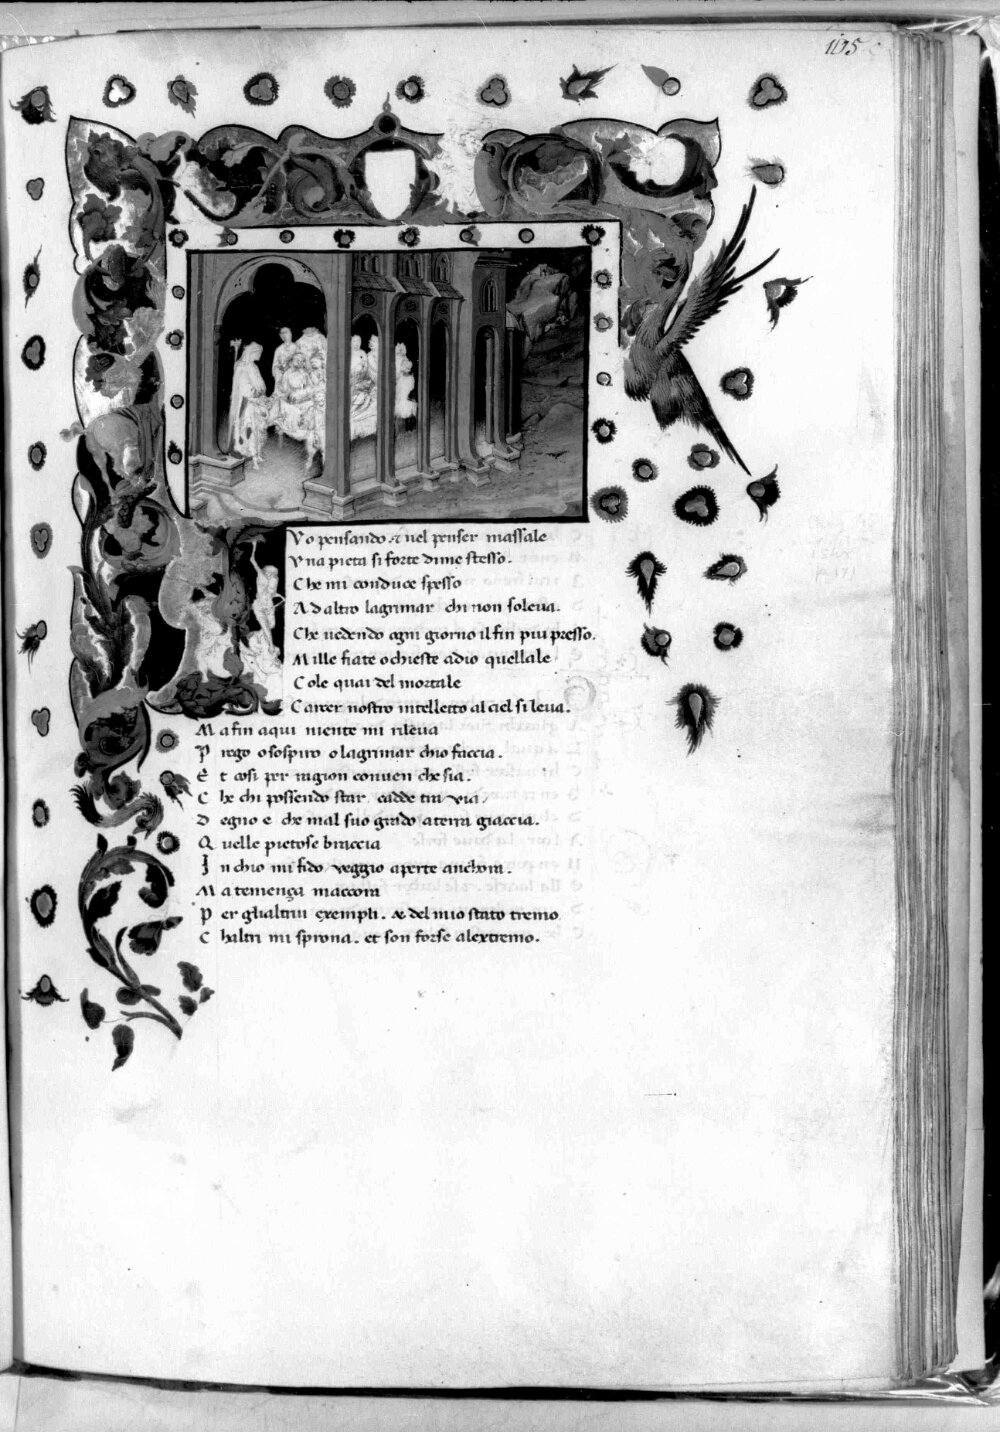 105
Vo pensando. & nel penser massale
Vna pieta si forte dime stesso.
Che mi conduce spesso
Ad altro lagrimar chi non soleua.
Che uedendo ogni giorno il fin piu presso.
Mille fiate o chieste a dio quellale
Cole quai del mortale
Carcer nostro intelletto al ciel si leua.
Ma fin a qui niente mi rileua
Prego o sospiro o lagrimar chio faccia.
Et cosi per ragion conuen che sia.
Che chi possendo star. cadde tra via
Degno e che mal suo grado a terra giaccia.
Quelle pietose braccia
In chio mi fido veggio aperte anchora.
Ma temença maccora
Per glialtrui exempli. & del mio stato tremo
Chaltri mi sprona. et son forse alextremo.